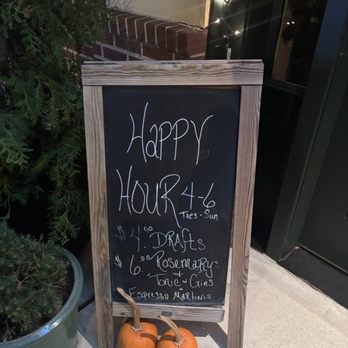 HAPPY
HOUR 4-6
Tues-Sun
$4.00 DRAfts
$6.00 Rosemary
+
Tonic Gins
Espresso Martinis